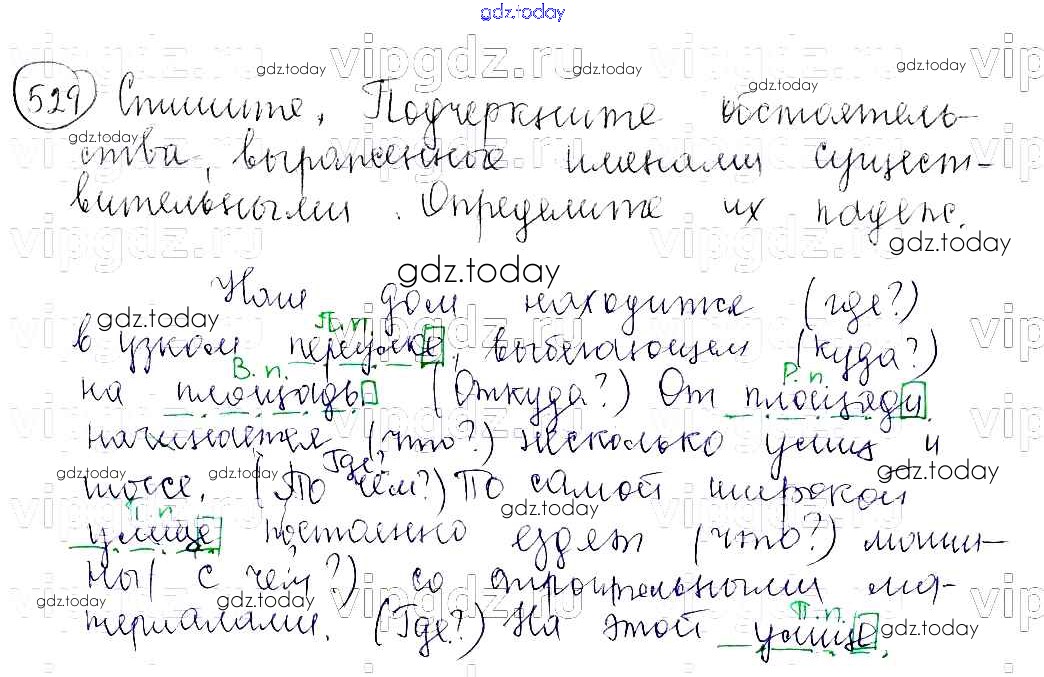 gdz.today
529 Спишите. Подчеркните обстоятель-
ства, выраженные именами сущест-
вительными. Определите их падеж.
gdz.today
Наш дом находится (где?)
П.п.
в узком переулке, выбегающем (куда?)
В.п. Р.п.
на площадь (Откуда?) От площади
начинается (что?) несколько улиц и
Где?
шоссе. (По чём?) По самой широкой
улице постоянно ездят (что?) маши-
ны (с чем?) со строительными ма-
П.п.
териалами. (Где?) На этой улице